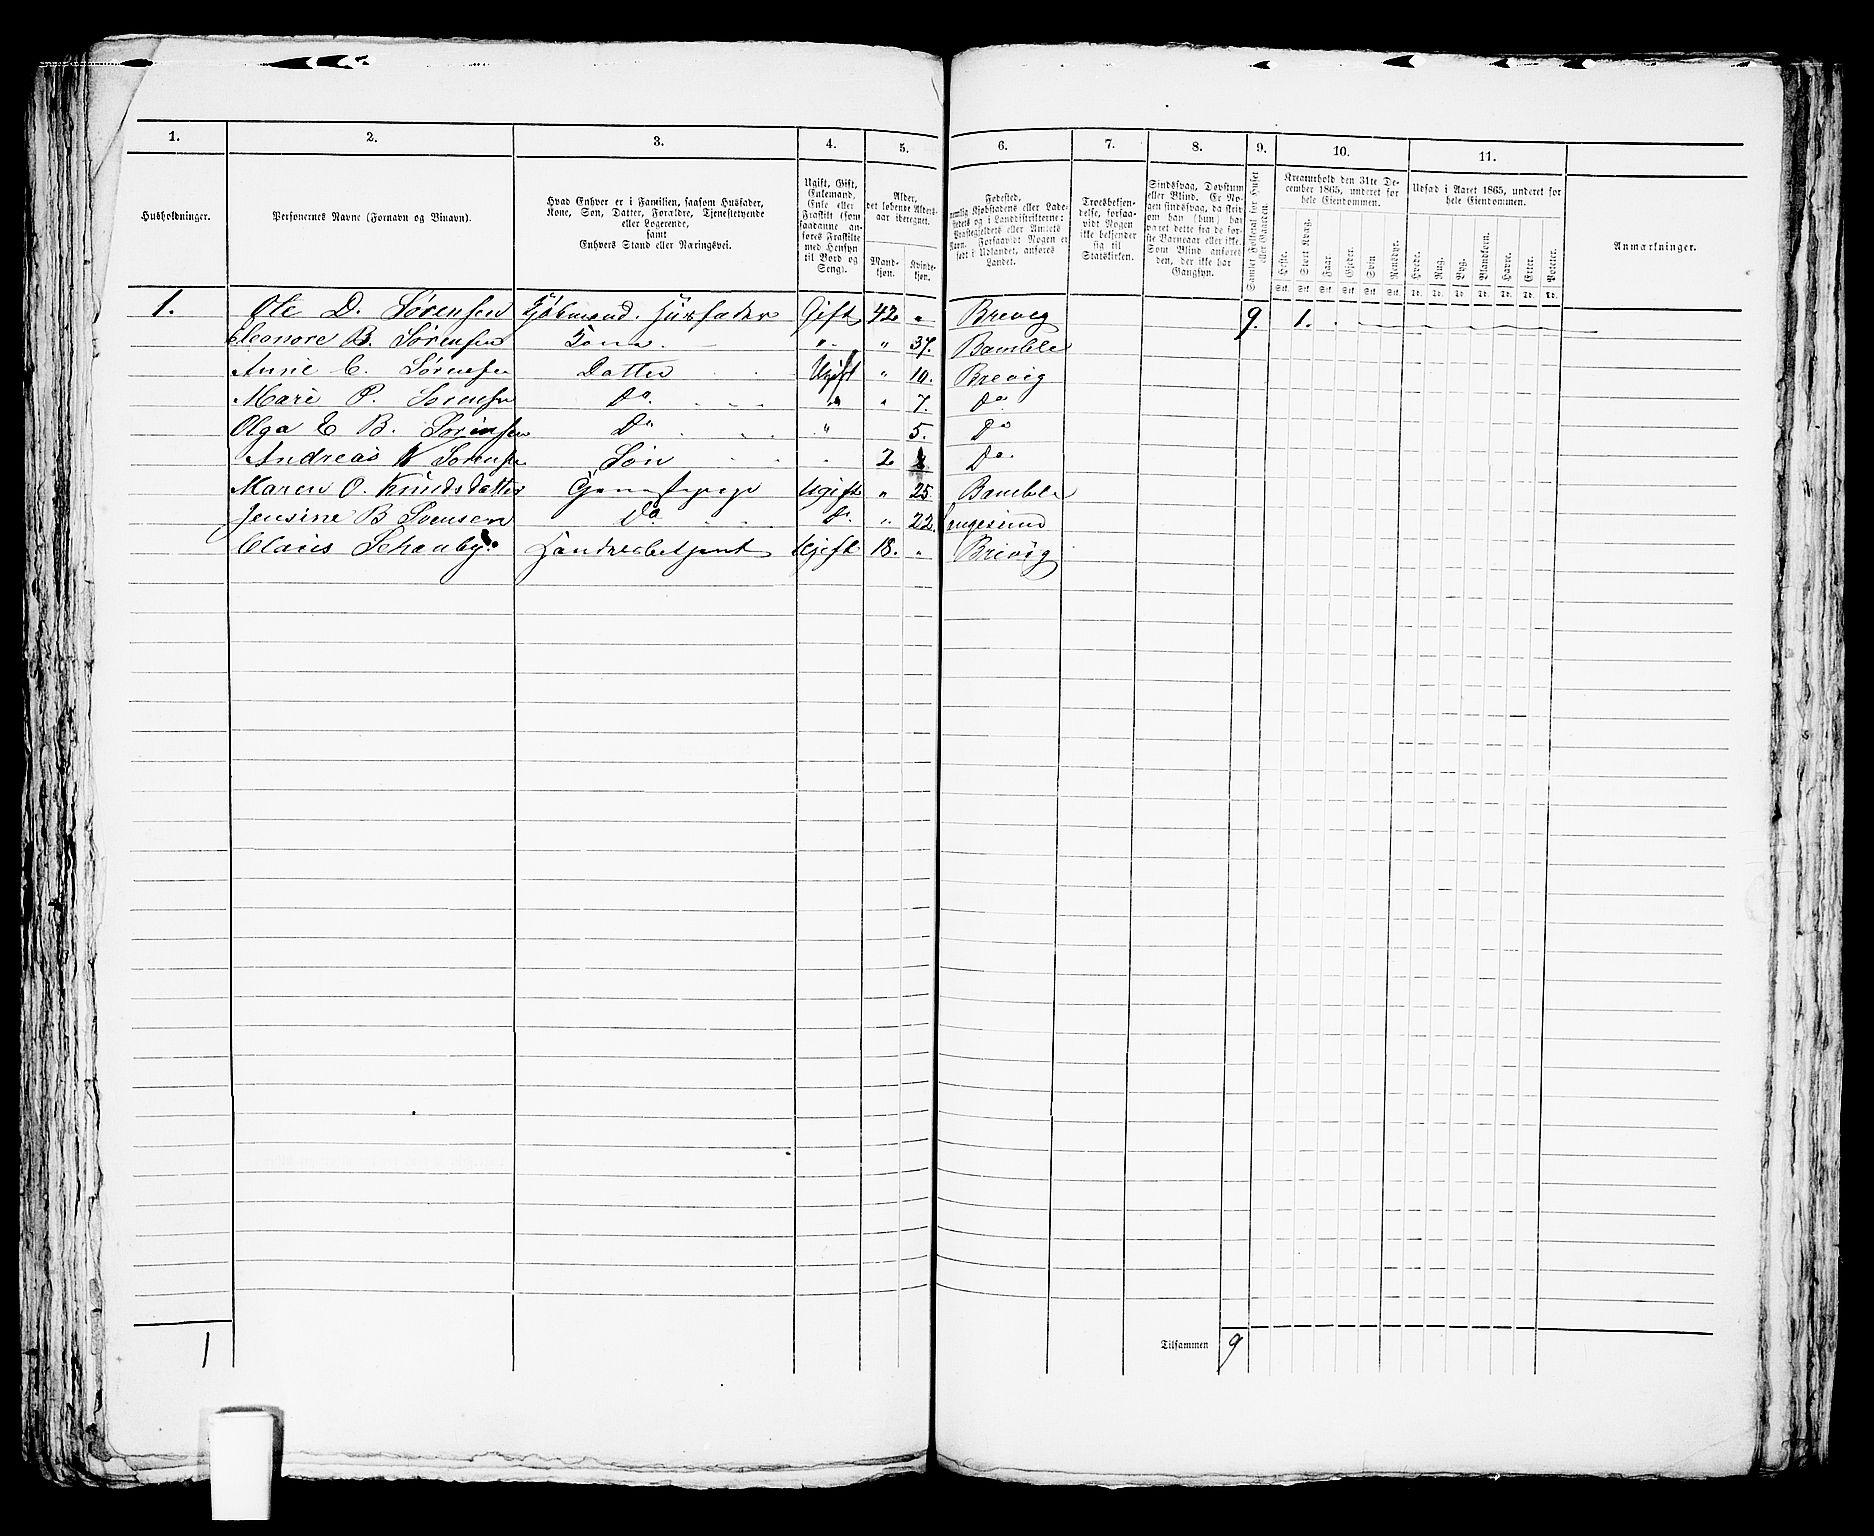 1. 2. 3. 4. 5. 6. 7. 8. 9. 10. 11.
Husholdninger.
Personernes Navne (Fornavn og Binavn).
Hvad Enhver er i Familien, saasom Husfader,
Kone, Søn, Datter, Forældre, Tjenestetyende
eller Logerende,
samt
Enhvers Stand eller Næringsvei.
Ugift, Gift,
Enkemand,
Enke eller
Fraskilt (som
saadanne an-
føres Fraskilte
med Hensyn
til Bord og
Seng).
Alder,
det løbende Alders-
aar iberegnet.
Mand-
kjøn.
Kvinde-
kjøn.
Fødested,
nemlig Kjøbstadens eller Lade-
stedets og i Landdistrikterne:
Præstegjeldets eller Amtets
Navn. Forsaavidt Nogen er
født i Udlandet, anføres
Landet.
Troesbekjen-
delse, forsaa-
vidt Nogen
ikke bekjender
sig til
Statskirken.
Sindssvag, Døvstum
eller Blind. Er No-
gen sindssvag, da skriv
om han (hun) har
været dette fra de før-
ste Barneaar eller ikke.
Som Blind anføres
den, der ikke har
Gangsyn.
Samlet Folketal for Huset
eller Gaarden.
Kreaturhold den 31te De-
cember 1865, underet for
hele Eiendommen.
Heste. Stort Kvæg. Faar. Gjeder. Sviin Rensdyr.
Stk. Stk. Stk. Stk. Stk. Stk.
Udsæd i Aaret 1865, underet for
hele Eiendommen.
Hvede. Rug. Byg. Blandkorn. Havre. Erter. Poteter.
Td. Td. Td. Td. Td. Td. Td.
Anmærkninger.
1. Ole D. Sørensen Kjøbmand. Husfader Gift 42 " Brevig 9. 1.
Eleonore B. Sørensen Kone. " " 37. Bamble
Anne C. Sørensen Datter Ugift " 10. Brevig
Marie P. Sørensen Do. " " 7. Do
Olga E B. Sørensen Do " 5. Do
Andreas K Sørensen Søn 2 Do.
Maren O. Knudsdatter Ugift " 25. Bamble
Jensine B Svensen Do. Do. " 22. Langesund
Claus Ugift 18. " Brevig
1 Tilsammen 9